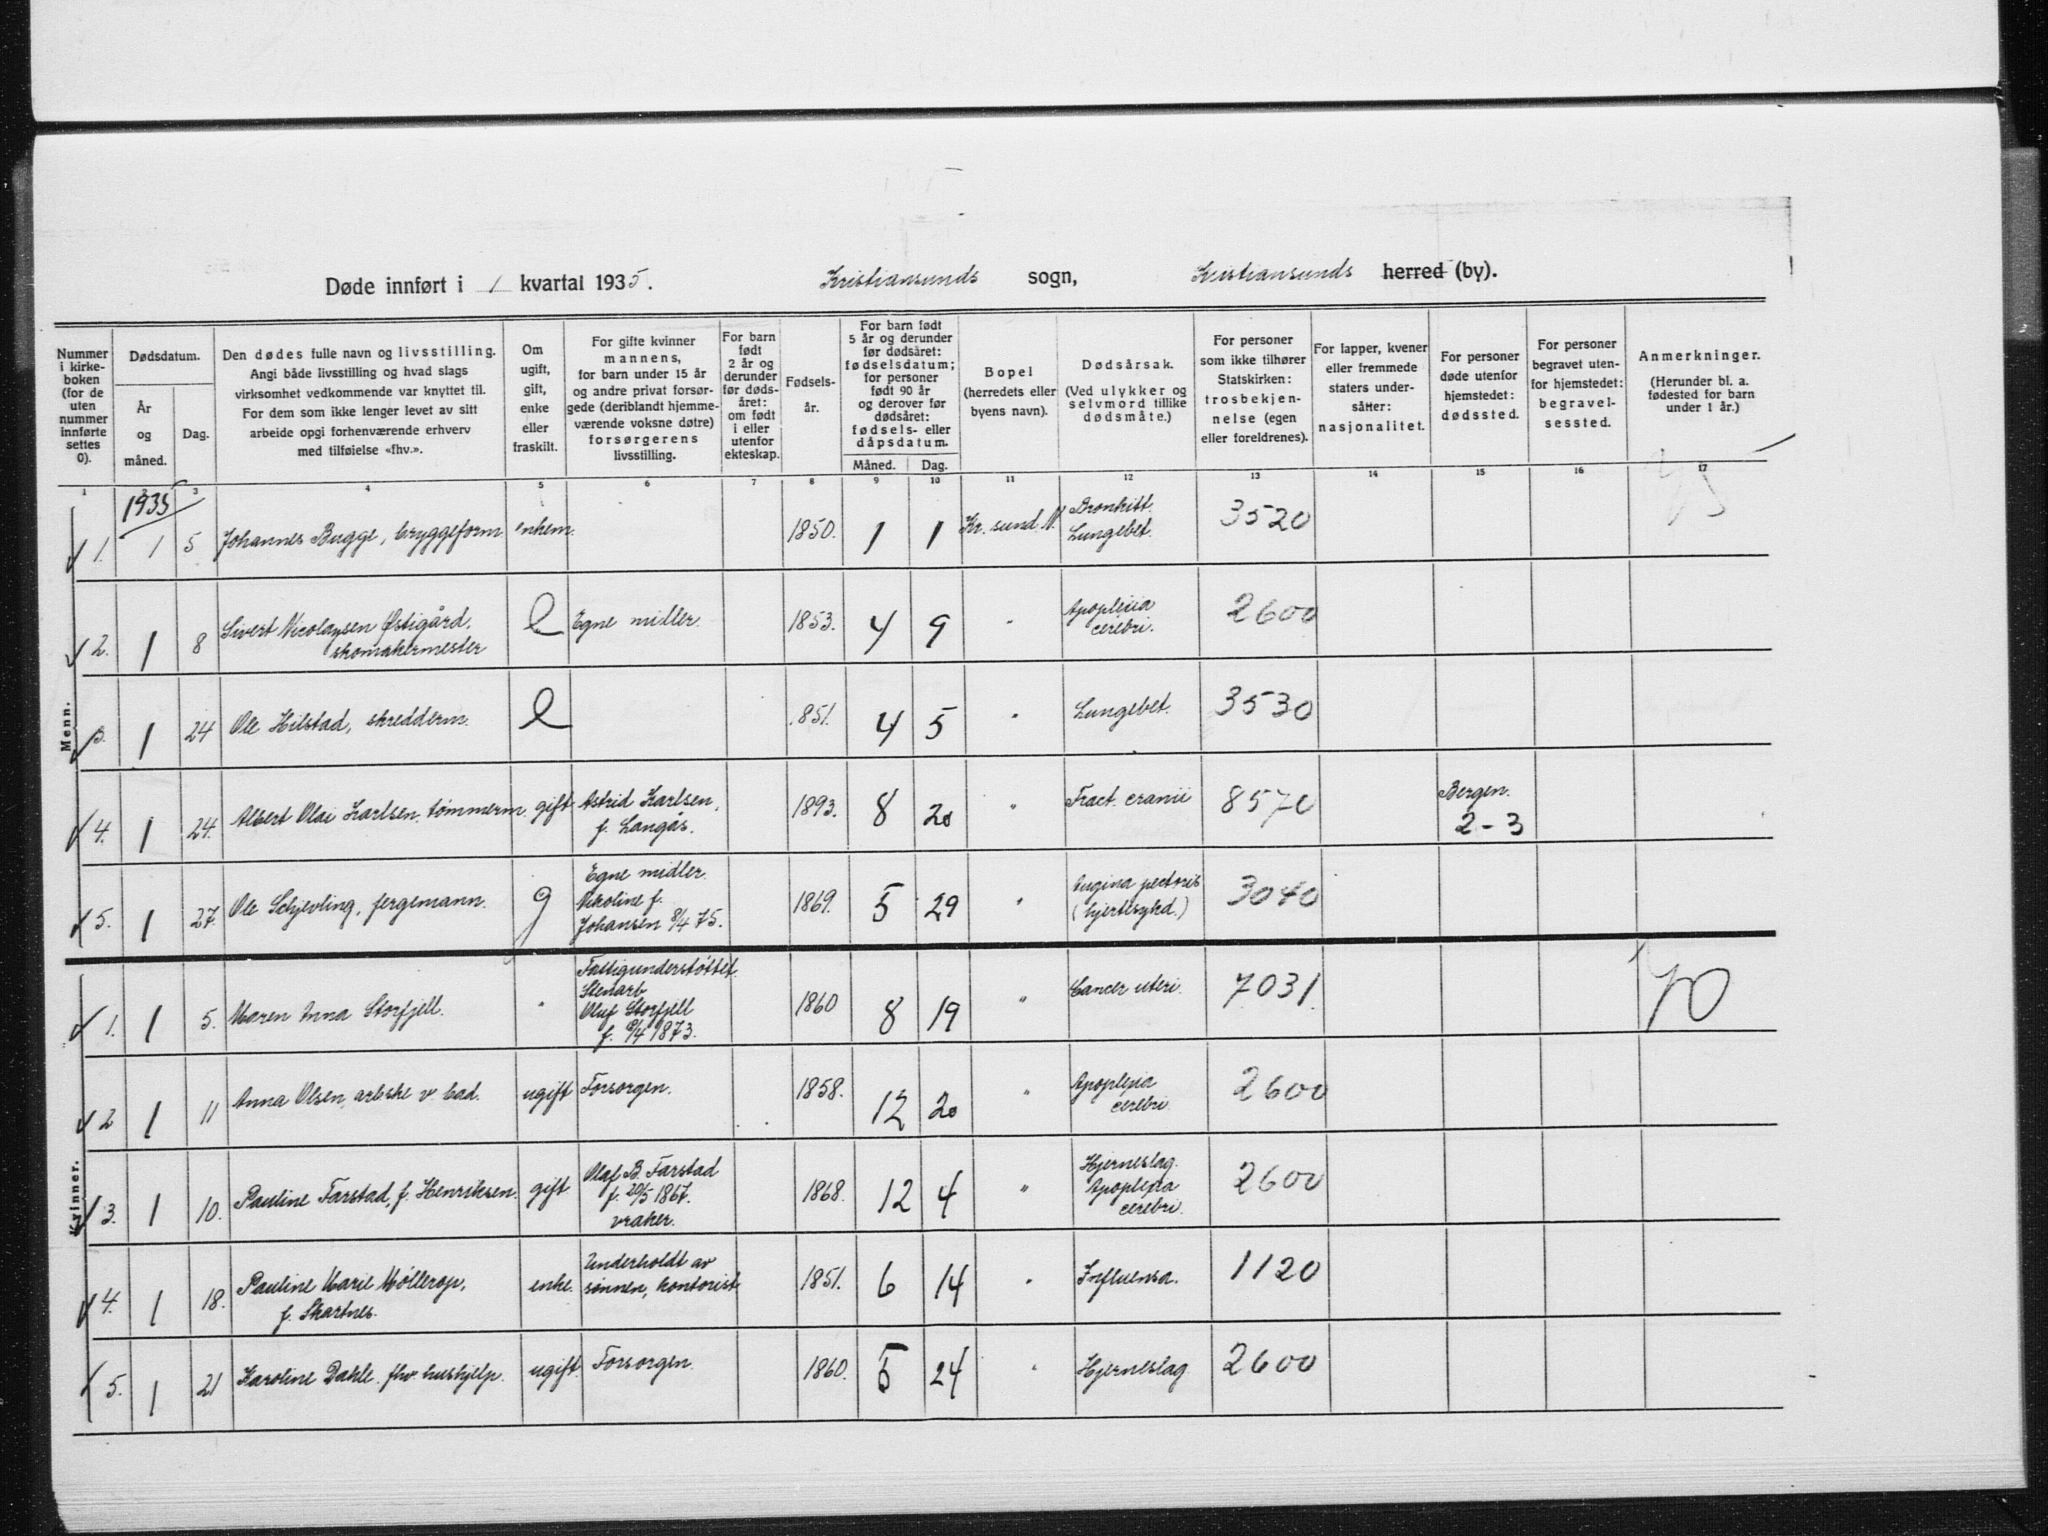 Døde innført i 1 kvartal 1935. Kristiansunds sogn, Kristiansunds herred (by).
Nummer i kirke- boken (for de uten nummer innførte settes 0).
Dødsdatum.
År og måned.
Dag.
Den dødes fulle navn og livsstilling. Angi både livsstilling og hvad slags virksomhet vedkommende var knyttet til. For dem som ikke lenger levet av sitt arbeide opgi forhenværende erhverv med tilføielse «fhv.».
Om ugift, gift, enke eller fraskilt.
For gifte kvinner mannens, for barn under 15 år og andre privat forsør- gede (deriblandt hjemme- værende voksne døtre) forsørgerens livsstilling.
For barn født 2 år og derunder før døds- året: om født i eller utenfor ekteskap.
Fødsels- år.
For barn født 5 år og derunder før dødsåret: fødselsdatum; for personer født 90 år og derover før dødsåret: fødsels- eller dåpsdatum.
Måned. Dag.
Bopel (herredets eller byens navn).
Dødsårsak. (Ved ulykker og selvmord tillike dødsmåte.)
For personer som ikke tilhører Statskirken: trosbekjen- nelse (egen eller foreldrenes).
For lapper, kvener eller fremmede staters under- såtter: nasjonalitet.
For personer døde utenfor hjemstedet: dødssted.
For personer begravet uten- for hjemstedet: begravel- sessted.
Anmerkninger. (Herunder bl. a. fødested for barn under 1 år.)
1 2 3 4 5 6 7 8 9 10 11 12 13 14 15 16 17
1935
Menn.
1. 1 5 Johannes Bugge, bryggeform enkem. 1850. 1 1 Kr. sund N. Bronkitt. Lungebet. 3520
2. 1 8 Sivert Nicolaysen Østigård, skomakermester e Egne midler. 1853. 4 9 " Apoplexia cerebri. 2600
3. 1 24 Ole Hilstad, skredderm. e 1851. 4 5 " Lungebet. 3530
4. 1 24. Albert Olai Karlsen, tømmerm. gift Astrid Karlsen, f. Langås. 1893. 8 20 " Fract. cranii 8570 Bergen. 2-3
5. 1 27. Ole Schjevling, fergemann. g Egne midler. Nikoline f. Johansen 8/4 75. 1869. 5 29 " Angina pectoris (hjertesykd.) 3040
Kvinner.
1. 1 5. Maren Anna Storfjell. " Fattigunderstøttet. Stenarb Oluf Storfjell 1873. 1860 8 19 " Cancer uteri. 7031 70
2 1 11 Anna Olsen, arbske v bad. ugift Forsorgen. 1858. 12 20 " Apoplexia cerebri. 2600
3. 1 10. Pauline Farstad, f. Henriksen. gift Olaf B. Farstad f. 20/5 1867. vraker. 1868. 12 4 " Hjerneslag. Apoplexia cerebri. 2600
4. 1 18. Pauline Marie Møllerop, f. Skartnes. enke. Underholdt av sønnen, kontorist 1851. 6 14 " Influensa. 1120
5. 1 21 Karoline Dahle. fhv hushjelp. ugift. Forsorgen. 1860. 5 24 " Hjerneslag 2600